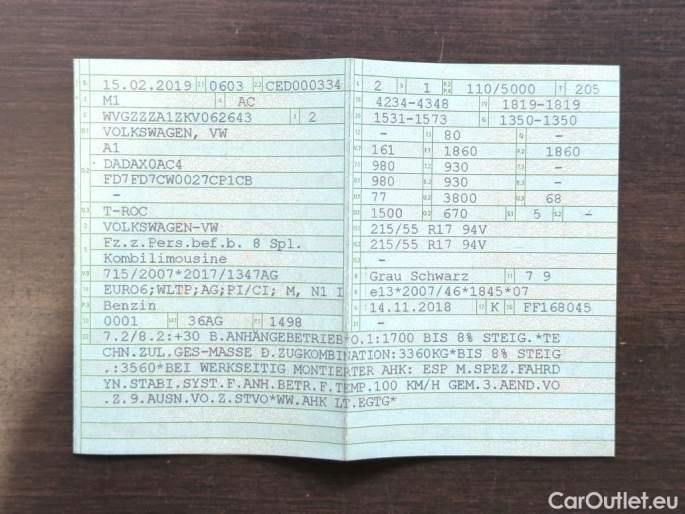 15.02.2019 0603 CED000334
M1 AC
WVGZZZA1ZKV062643 2
VOLKSWAGEN, VW
A1
DADAX0AC4
FD7FD7CW0027CP1CB
-
T-ROC
VOLKSWAGEN-VW
Fz.z.Pers.bef.b. 8 Spl.
Kombilimousine
715/2007*2017/1347AG
EURO6;WLTP;AG;PI/CI; M, N1 I
Benzin
0001 36AG 1498
2 1 110/5000 205
4234-4348 1819-1819
1531-1573 1350-1350
- 80 -
161 1860 1860
980 930 -
980 930 -
77 3800 68
1500 670 5 -
215/55 R17 94V
215/55 R17 94V
-
Grau Schwarz 7 9
e13*2007/46*1845*07
14.11.2018 K FF168045
-
7.2/8.2:+30 B.ANHÄNGEBETRIEB*O.1:1700 BIS 8% STEIG.*TE
CHN.ZUL.GES-MASSE D.ZUGKOMBINATION:3360KG*BIS 8% STEIG
.:3560*BEI WERKSEITIG MONTIERTER AHK: ESP M.SPEZ.FAHRD
YN.STABI.SYST.F.ANH.BETR.F.TEMP.100 KM/H GEM.3.AEND.VO
.Z.9.AUSN.VO.Z.STVO*WW.AHK LT.EGTG*
CarOutlet.eu